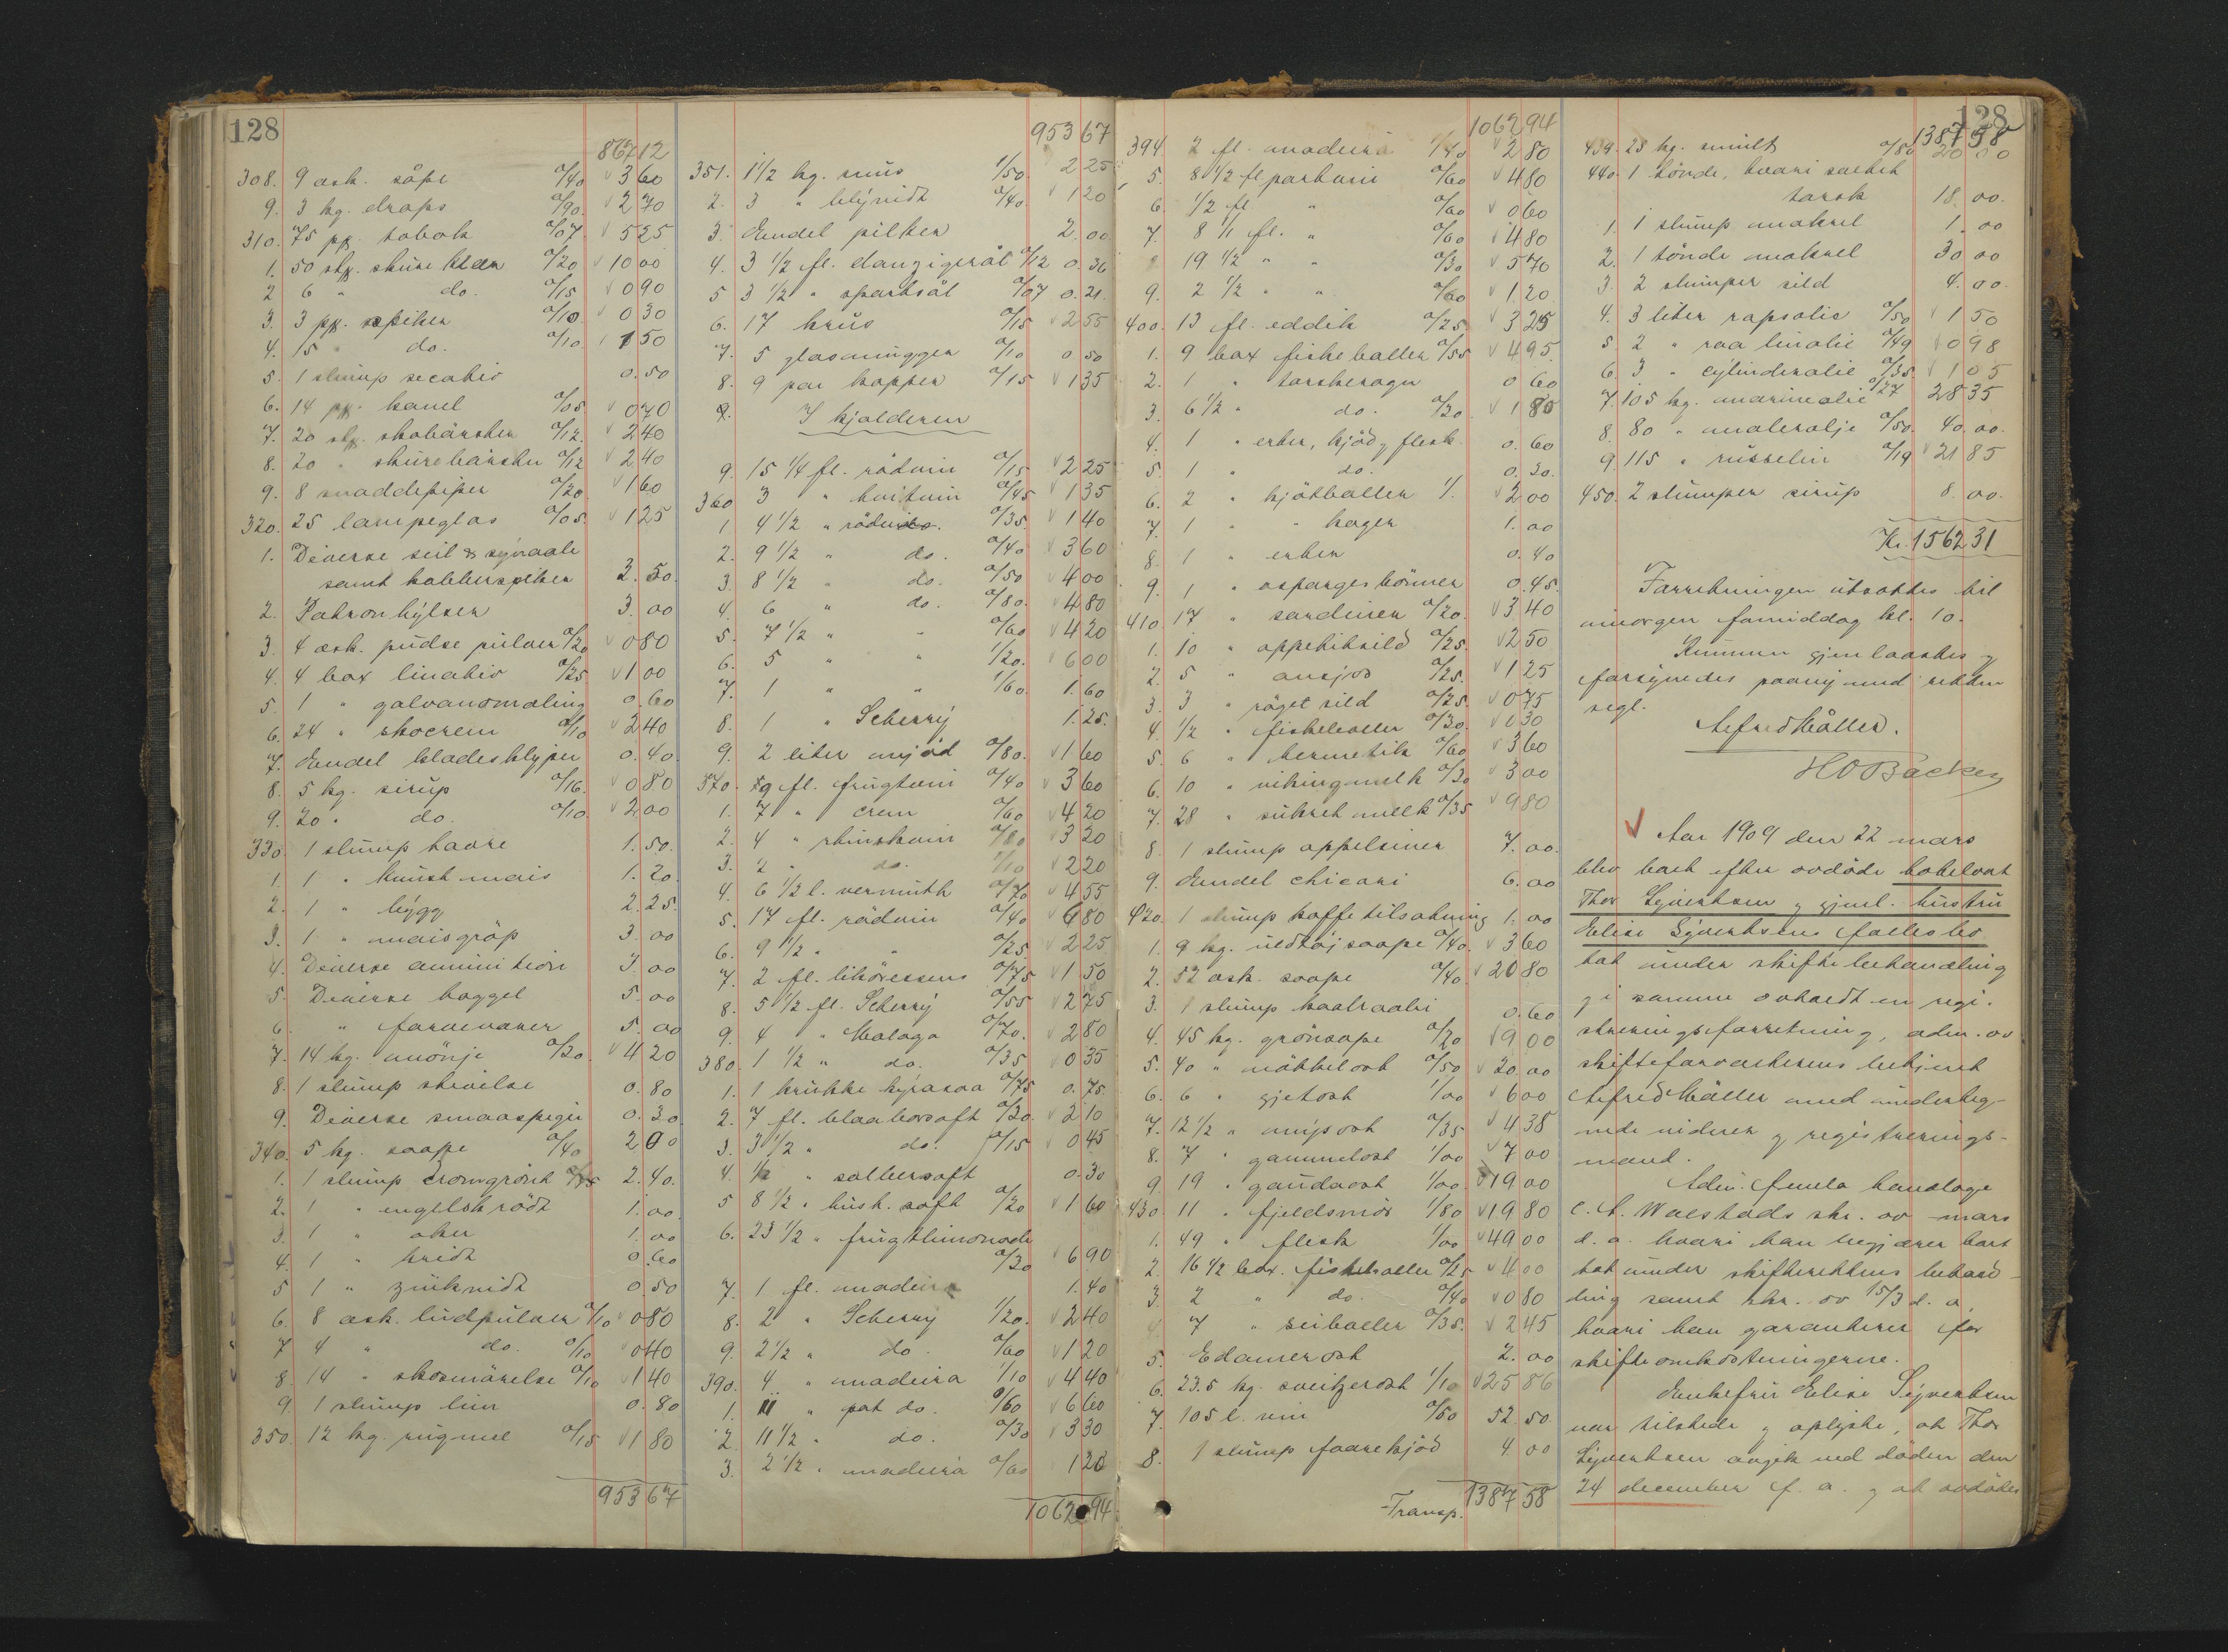 128
867 12
308. 9 æsk. såpe a/40 3 60
9. 3 kg. drops a/90. 2 70
310. 75 pk. tobak a/07 5 25
1. 50 stk. skureklær a/20 10 00
2 6 " do. a/15 0 90
3. 3 pk. spiker a/10. 0 30
4. 15 " do. a/10. 1 50
5. 1 slump secativ 0.50
6. 14 pk. kanel a/05. 0 70
7. 20 stk. skobörster a/12. 2 40
8. 20 " skurebörster a/12 2 40
9. 8 snaddepiper a/20. 1 60
320. 25 lampeglas a/05. 1 25
1. Diverse seil & synaale
samt kobberspiker 2.50.
2. Patronhylser 3.00
3. 4 æsk. pudse pulver a/20 0 80
4. 4 box linativ a/25 1 00
5. 1 " galvanomaling 0.60
6. 24 " skocrem a/10 2 40
7. Endel kladesklyper 0.40.
8. 5 kg. sirup a/16. 0 80
9. 20 " do. a/10. 2 00
330. 1 slump havre 1.50.
1. 1 " knust mais 1.20.
2. 1 " bygg 2.25.
3. 1 " maisgröp 3.00
4. Diverse ammunition 3.00
5. Diverse haggel 5.00
6. " farvevarer 5.00
7. 14 kg. mönje a/30. 4 20
8. 1 slump skroelse 0.80
9. Diverse smaaspiger 0.30
340. 5 kg. soape a/40 2 00
1. 1 slump cromgrönt 2.40.
2. 1 " engelsk rödt 1.00.
3. 1 " oker 1.00
4. 1 " kridt 0.60
5 1 " zinkhvidt 0.50
6. 8 æsk. ludpulver a/10 0 80
7 4 " do. a/10 0 40
8. 14 " skosmörelse a/10 1 40
9. 1 slump lim 0.80
350. 12 kg. rugmel a/15 1 80
953 67
953 67
351. 1 1/2 kg. snus 1/50. 2 25
2. 3 " blyvidt a/40. 1 20
3. Endel pilker 2.00
4. 3 1/2 fl. danzigeröl a/12 0.36
5 3 1/2 " sportsöl a/07 0.21.
6. 17 krus a/15 2 55
7. 5 glasmugger a/10 0 50
8. 9 par kopper a/15 1 35
9. I kjælderen
9. 15 1/4 fl. rödvin a/15 2 25
360 3 " hvitvin a/45 1 35
1 4 1/2 " rödvin a/35. 1 40
2. 9 1/2 " do. a/40 3 60
3. 8 1/2 " do. a/50 4 00
4. 6 " do. a/80. 4 80
5. 7 1/2 " " a/60 4 20
6. 5 " " 1/20. 6 00
7. 1 " " 1/60. 1.60
8. 1 " Scherry 1.25.
9. 2 liter mjød a/80. 1 60
370. 9 fl. frugtvin a/40 3 60
1. 7 " crem a/60 4 20
2. 4 " rhinskvin a/80 3 20
3. 2 " do. 1/10 2 20
4. 6 1/2 l. vermuth a/70 4 55
5. 17 fl. rödvin a/40 6 80
6. 9 1/2 " " a/25. 2 25
7. 2 fl. likøressens a/75 1 50
8. 5 1/2 fl. Scherry a/55 2 75
9. 4 " Malaga a/70. 2 80
380. 1 1/2 " do. a/35 0 35
1. 1 krukke kyracao a/75 0.75.
2. 7 fl. blaabærsaft a/30. 2 10
3. 3 1/2 " do. a/15 0 45
4. 1/2 " solbersaft 0.30
5 8 1/2 " hush. saft a/20 1 60
6. 23 1/2 " frugtlimonade
a/30 6 90
7. 1 fl. madeira 1.40
8. 2 " Scherry 1/20. 2 40
9. 2 1/2 " do. a/60 1 20
390. 4 " madeira 1/10 4 40
1. 11 " port do. a/60 6 60
2. 11 1/2 " do. a/30 3 30
3. 2 1/2 " madeira a/60 1 20
1062 94
1062 94
394. 2 fl. madeira 1/40 2 80
5. 8 1/2 fl portvin a/60 4 80
6. 1/2 fl. " a/60 0 60
7. 8 1/1 fl. " a/60 4 80
8 19 1/2 " " a/30 5 70
9. 2 1/2 " " a/60 1.20
400. 13 fl. eddik a/25. 3 25
1. 9 box fiskeballer a/55 4 95.
2. 1 " torskerogn 0 60
3. 6 1/2 " do. a/30 1 80
4. 1 " erter, kjöd og flesk. 0.60
5. 1 " do. 0.30.
6. 2 " kjötballer 1/. 2 00
7. 1 " " kager 1.00
8. 1 " erter 0.40
9. 1 " aspargesbönner 0.45.
410. 17 " sardiner a/20. 3 40
1. 10 " appetitsild a/25. 2 50
2. 5 " ansjos a/25. 1 25
3. 3 " röget sild a/25. 0 75
4. 1/2 " fiskeboller a/30. 0 30
5. 6 " hermetik a/60 3 60
6. 10 " vikingmelk a/30 3 00
7. 28 " sukret melk a/35 9 80
8. 1 slump appelsiner 7.00.
9. Endel chicori 6.00
420. 1 slump kaffetilsætning 1.00
1. 9 kg. uldtöjsoape a/40. 3 60
2. 52 æsk. soape a/40. 20 80
3. 1 slump kaalraabi 0.60
4. 45 kg. grönsape a/20 9 00
5. 40 " nökkelost a/50 20.00
6. 6 " gjetost 1/00 6 00
7. 12 1/2 " mysost a/35 4 38
8. 7 " gammelost 1/00 7 00
9. 19 " gaudaost 1/00. 19 00
430. 11 " fjeldsmör 1/80 19 80
1. 49 " flesk 1/00 49 00
2. 16 1/2 box. fiskeboller a/25 4 00
3. 2 " do. a/40 0 80
4 7 " seiboller a/35. 2 45
5. Edamerost 2.00
6. 23.5 kg. sveitzerost 1/10 25 86
7. 105 l. vin a/50 52.50.
8. 1 slump faarekjöd 4.00
Transp. 1387 58
128
1387 58
439. 25 kg. smult a/80 20 00
440. 1 tönde, hvori saltet
torsk 18.00.
1. 1 slump makrel 1.00
2. 1 tönde makrel 30 00
3. 2 slumper sild 4.00.
4. 3 liter rapsolie a/50 1 50
5. 2 " raa linolie a/49 0 98
6. 3 " cylinderolie a/35. 1 05
7. 105 kg. marineolie a/27 28 35
8. 80 " malerolje a/50. 40.00.
9. 115 " russelin a/19 21 85
450. 2 slumper sirup 8.00.
Kr. 1562 31
Forretningen utsattes til
imorgen formiddag kl. 10.
Rummen gjenlaastes og
forsynedes paany med rettens
segl.
Alfred Møller.
H O Backer
Aar 1909 den 22 mars
blev boet efter avdöde hotelvert
Thor Syvertsen og gjenl. hustru
Elise Syvertsens fællesbo
tat under skiftebehandling
og i samme avholdt en regi-
streringsforretning, adm. av
skifteforvalterens betjent
Alfred Møller med underteg-
nede vidner og registrerings-
mænd.
Adm. fremla handlage
C. A. Walstads skr. av mars
d. a. hvori han begjærer boet
tat under skifterettens behand-
ling samt skr. av 15/3 d. a.
hvori han garanterer for
skifteomkostningerne.
Enkefru Elise Syvertsen
var tilstede og oplyste, at Thor
Syvertsen avgik ved döden den
24 december f. a. og at avdødes